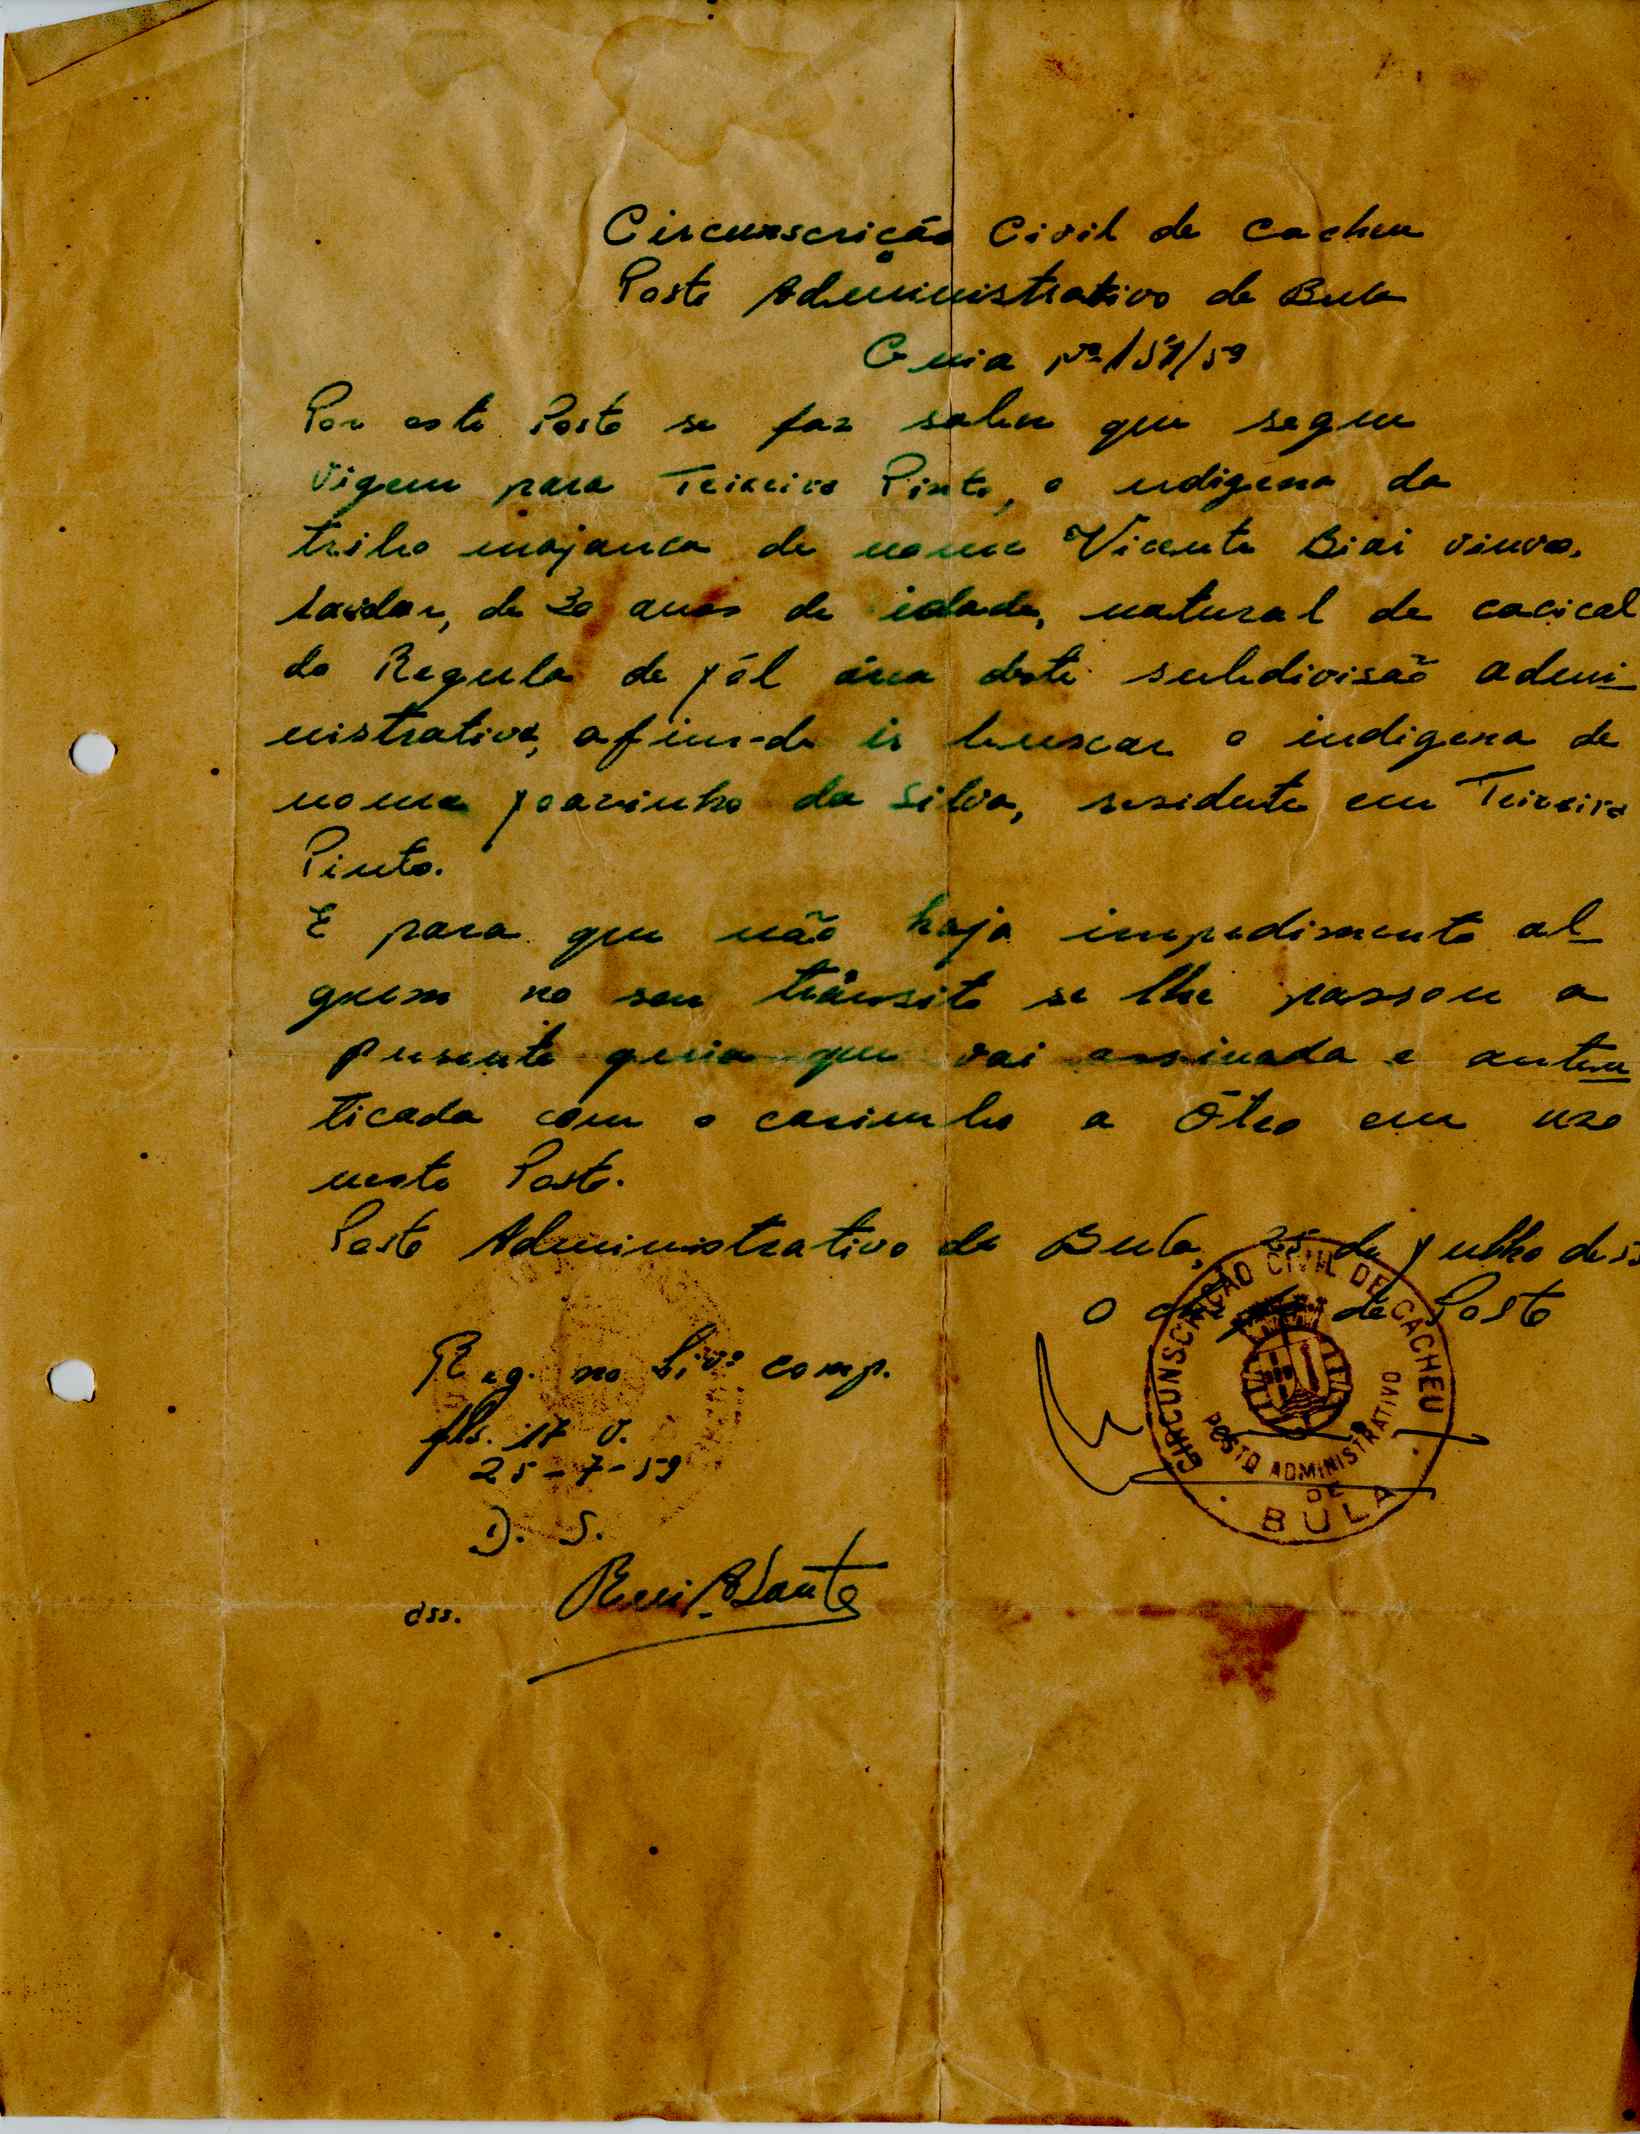 Circunscrição Civil de Cacheu
Posto Administrativo de Bula
Guia nº 157/59
Por este Posto se faz saber que segue
vigem para Teixeira Pinto, o indigena da
tribo majanca de nome Vicente Biai viuvo,
de 30 anos de idade, natural de cacical
do Regulo de Jól área deste subdivisão admi-
nistrativa, afim-de ir buscar o indigena de
nome Joãozinho da Silva, residente em Teixeira
Pinto.
E para que não haja impedimento al-
guem no seu trânsito se lhe passou a
presente guia que vai assinada e auten
ticada com o carimbo a Óleo em uso
neste Posto.
Posto Administrativo de Bula, 25 de Julho de 59
O chefe de Posto
CIRCUNSCRIÇÃO CIVIL DE CACHEU
POSTO ADMINISTRATIVO
DE
BULA
Reg. no Livº comp.
fls. 17 v.
25-7-59
D. S.
ass.